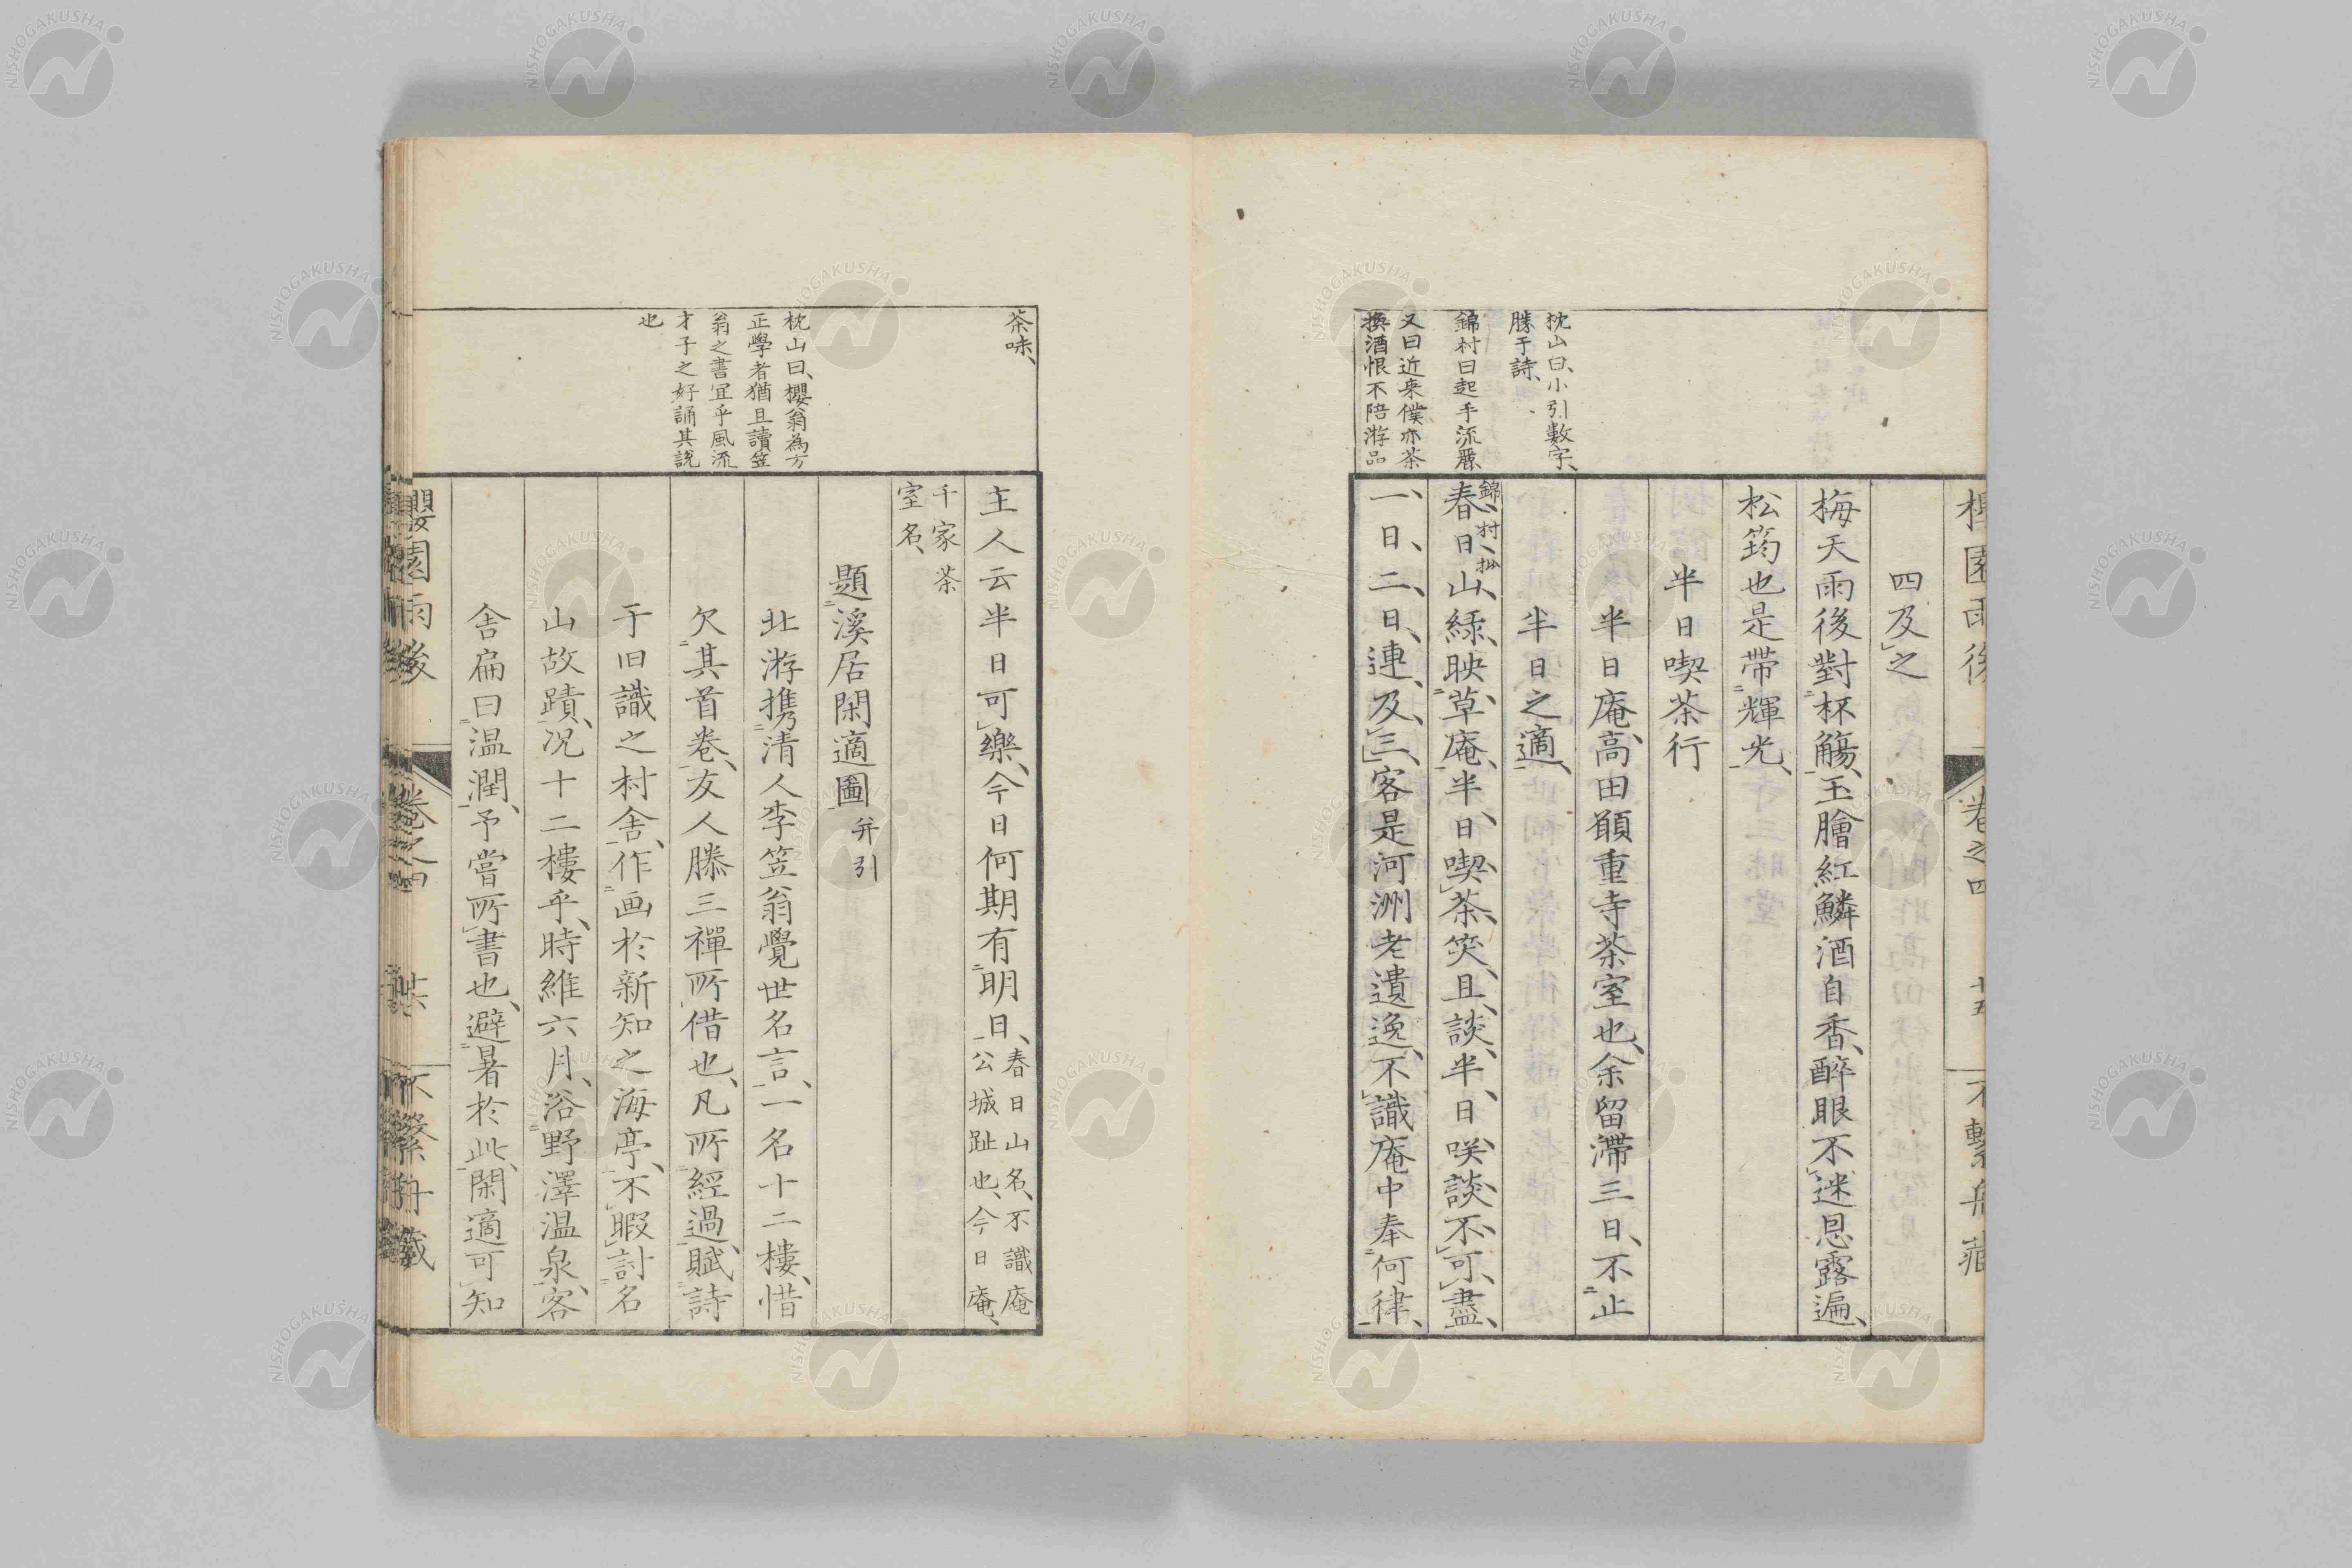 四及之
梅天雨後對杯觴、玉膾紅鱗酒自香、醉眼不迷恩露遍、
松筠也是帶輝光、
半日喫茶行
半日庵、高田願重寺茶室也、余留滯三日、不止
半日之適、
春日山緑映草庵、半日喫茶笑且談、半日咲談不可盡、
錦村批
一日二日連及三、客是河洲老遺逸、不識庵中奉何律、
枕山曰、小引數字、
勝于詩、
錦村曰起手流麗
又曰近来僕亦茶
換酒恨不陪游品
茶味、
主人云半日可樂、今日何期有明日、春日山名、不識庵
公城趾也、今日庵、
千家茶
室名、
題溪居閑適圖 并引
北游携清人李笠翁覺世名言、一名十二樓、惜
欠其首卷、友人滕三禪所借也、凡所經過、賦詩
于旧識之村舍、作画於新知之海亭、不暇討名
山故蹟、况十二樓乎、時維六月、浴野澤温泉、客
舍扁曰温潤、予嘗所書也、避暑於此、閑適可知
枕山曰、櫻翁為方
正學者猶且讀笠
翁之書宜乎風流
才子之好誦其説
也
櫻園雨後
卷之四
不繫舟藏
NISHOGAKUSHA